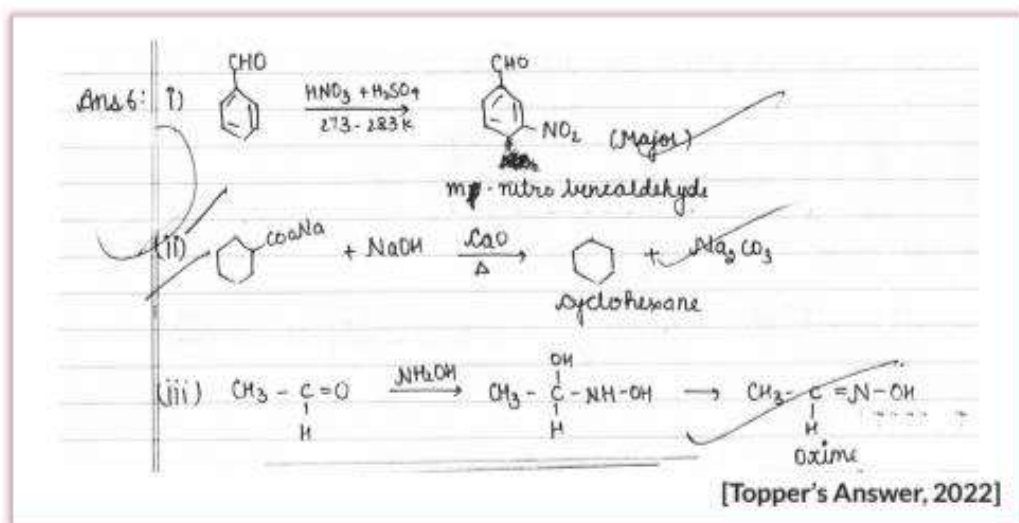 Ans 6: i) CHO HNO3 + H2SO4 273-283K CHO NO2 (Major)
m-nitro benzaldehyde
(ii) COONa + NaOH CaO Δ + Na2CO3
cyclohexane
(iii) CH3 - C = O NH2OH CH3 - C - NH-OH CH3 - C = N-OH
H OH H H
oxime
[Topper's Answer, 2022]